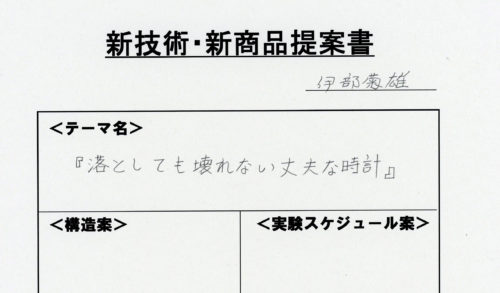 新技術・新商品提案書
伊部菊雄
＜テーマ名＞
『落としても壊れない丈夫な時計』
＜構造案＞
＜実験スケジュール案＞